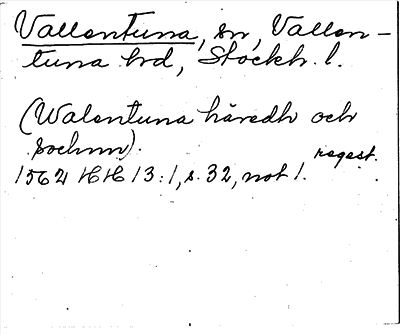 Vallentuna, sn, Vallen-
tuna hd, Stockh. l.
(Walentuna häredh och
sochnn).
regest.
1562 HH 13:1, s. 32, not 1.